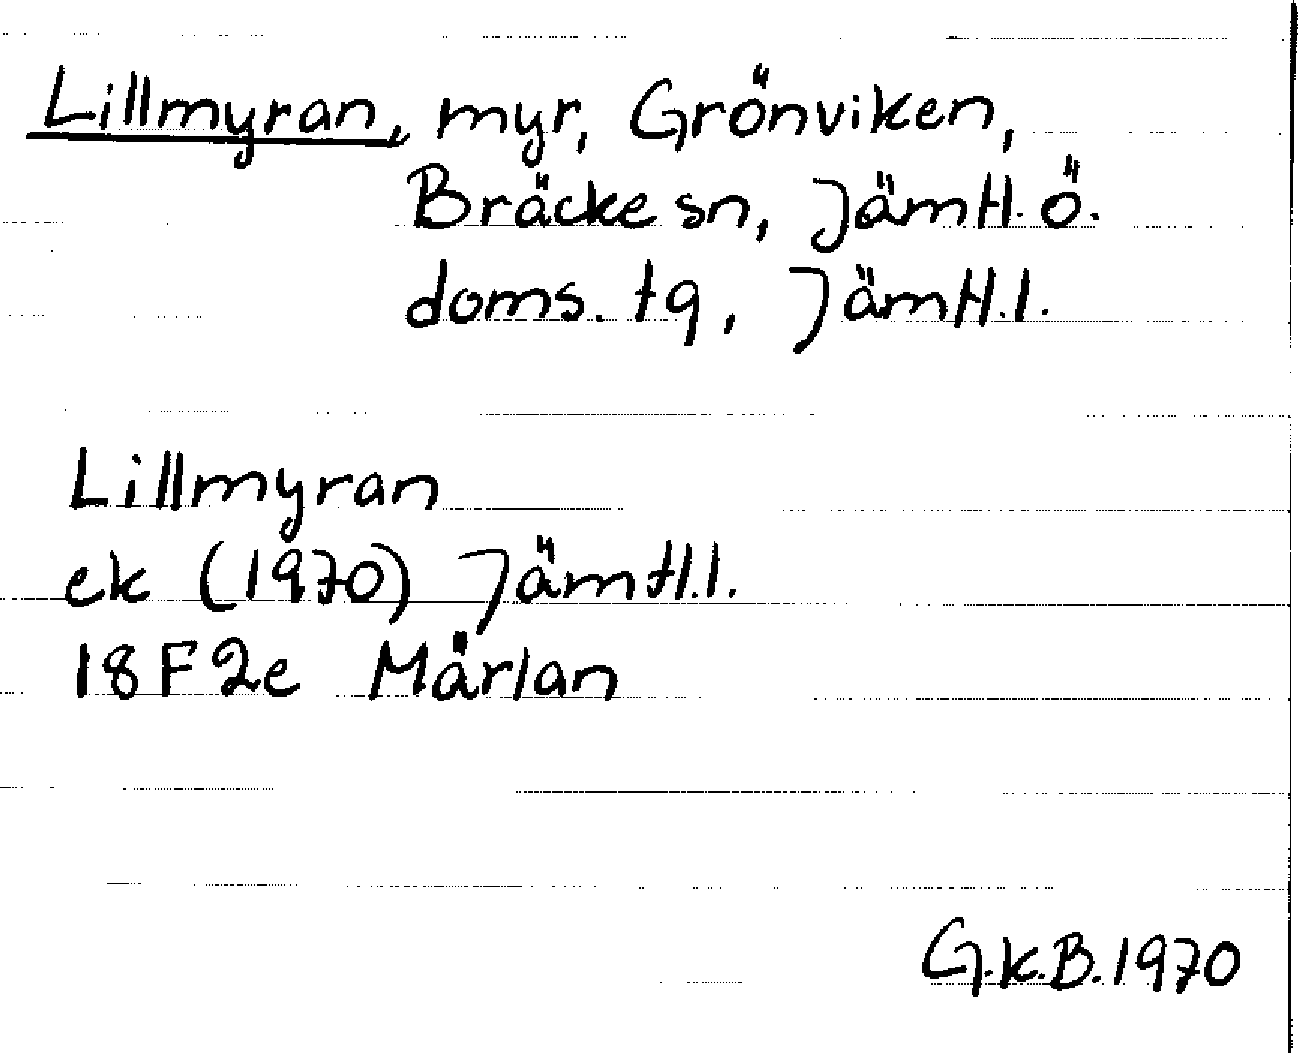 Lillmyran, myr, Grönviken,
Bräcke sn, Jämtl. ö.
doms. tg, Jämtl.l.
Lillmyran
ek (1970) Jämtl.l.
18 F 2e Märlan
G.K.B. 1970